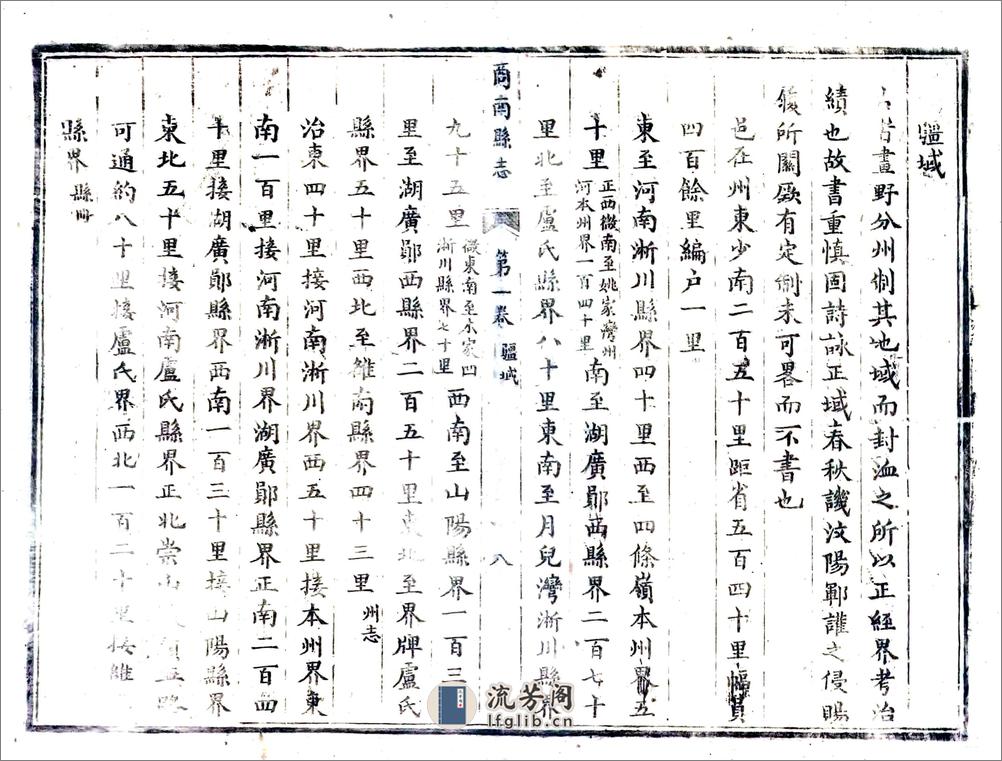 疆域
昔畫野分州制其地域而封洫之所以正經界考治
績也故書重慎固詩詠正域春秋譏汶陽鄆讙之侵賜
所關厥有定制未可畧而不書也
邑在州東少南二百五十里距省五百四十里幅員
四百餘里編户一里
東至河南淅川縣界四十里西至四條嶺本州界五
十里
正西微南至姚家灣州
河本州界一百四十里
南至湖廣鄖西縣界二百七十
里北至盧氏縣界八十里東南至月兒灣淅川縣界
商南縣志
第一卷
疆域
八
九十五里
微東南至水家凹
淅川縣界七十里
西南至山陽縣界一百三
里至湖廣鄖西縣界二百五十里東北至界牌盧氏
縣界五十里西北至雒南縣界四十三里
州志
治東四十里接河南淅川界西五十里接本州界東
南一百里接河南淅川界湖廣鄖縣界正南二百四
十里接湖廣鄖縣界西南一百三十里接山陽縣界
東北五十里接河南盧氏縣界正北崇山
可通約八十里接盧氏界西北一百二十里接雒
縣界
縣冊
流芳阁
lfglib.cn